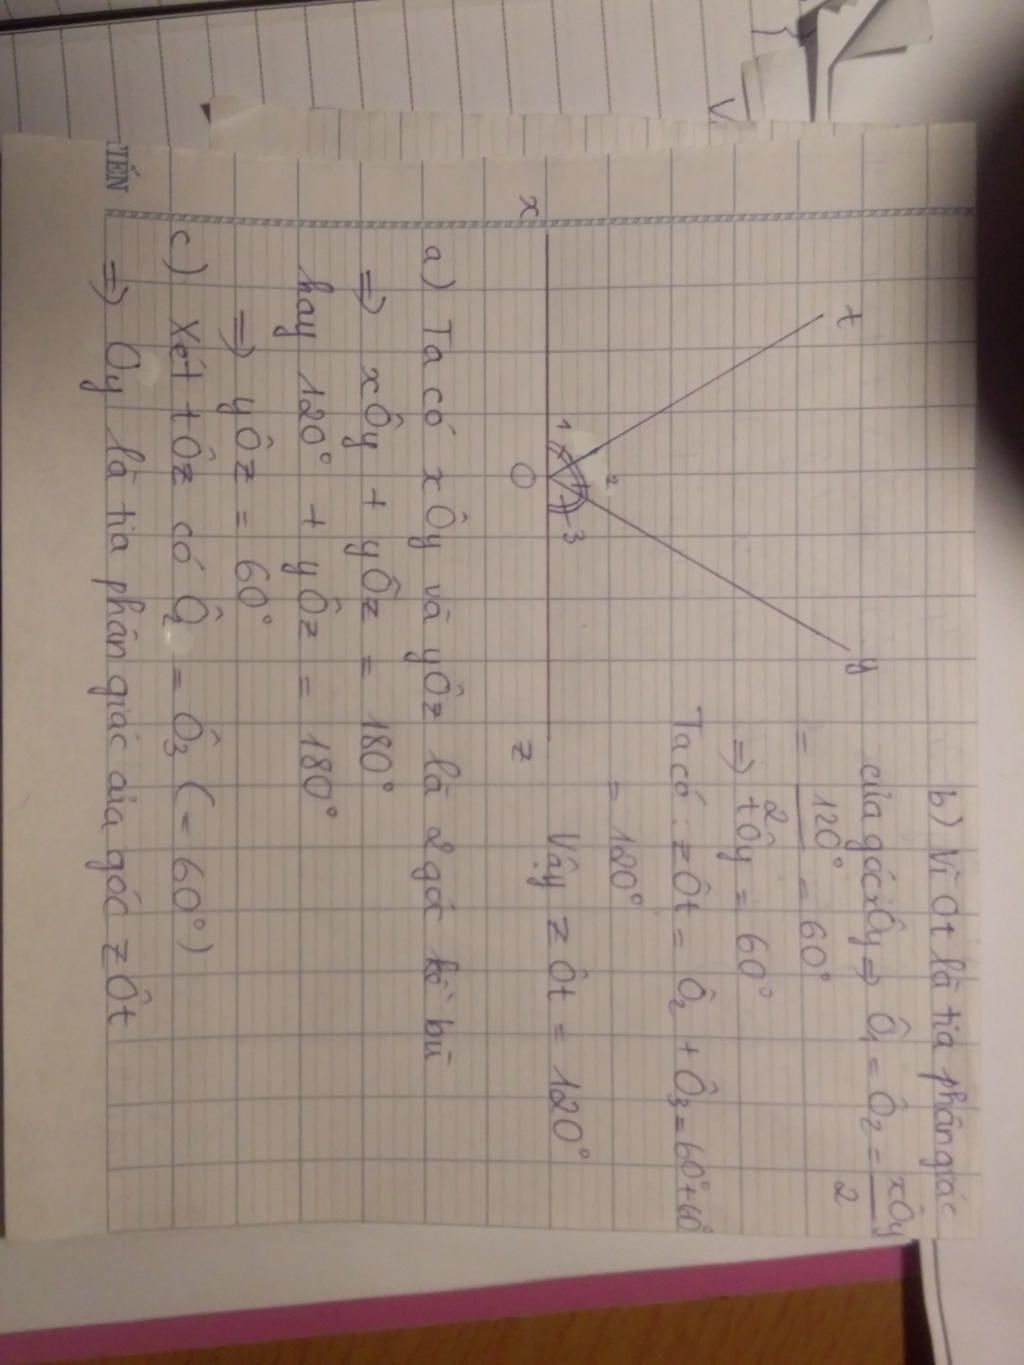 t
y
1
2
3
x
O
z
b) Vì Ot là tia phân giác
của góc xÔy => Ô1 = Ô2 = xÔy/2
= 120°/2 = 60°
=> tÔy = 60°
Ta có: zÔt = Ô2 + Ô3 = 60° + 60°
= 120°
Vậy zÔt = 120°
a) Ta có xÔy và yÔz là 2 góc kề bù
=> xÔy + yÔz = 180°
hay 120° + yÔz = 180°
=> yÔz = 60°
c) Xét tÔz có Ô2 = Ô3 (= 60°)
=> Oy là tia phân giác của góc zÔt